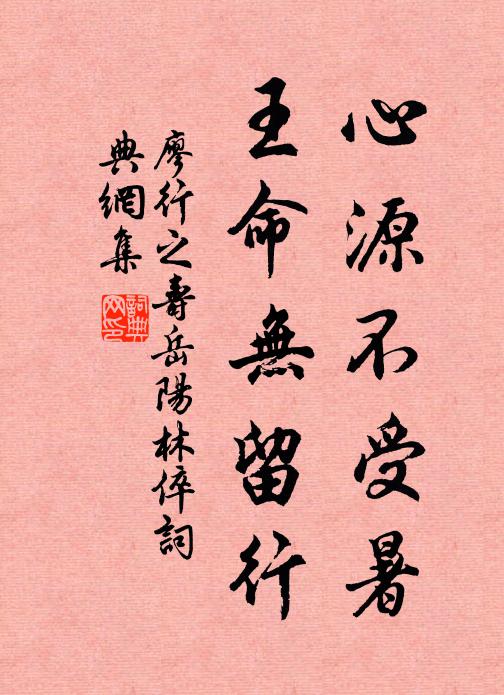 心源不受暑
王命無留行
廖行之壽岳陽林倅詞
典網集
詞典網印